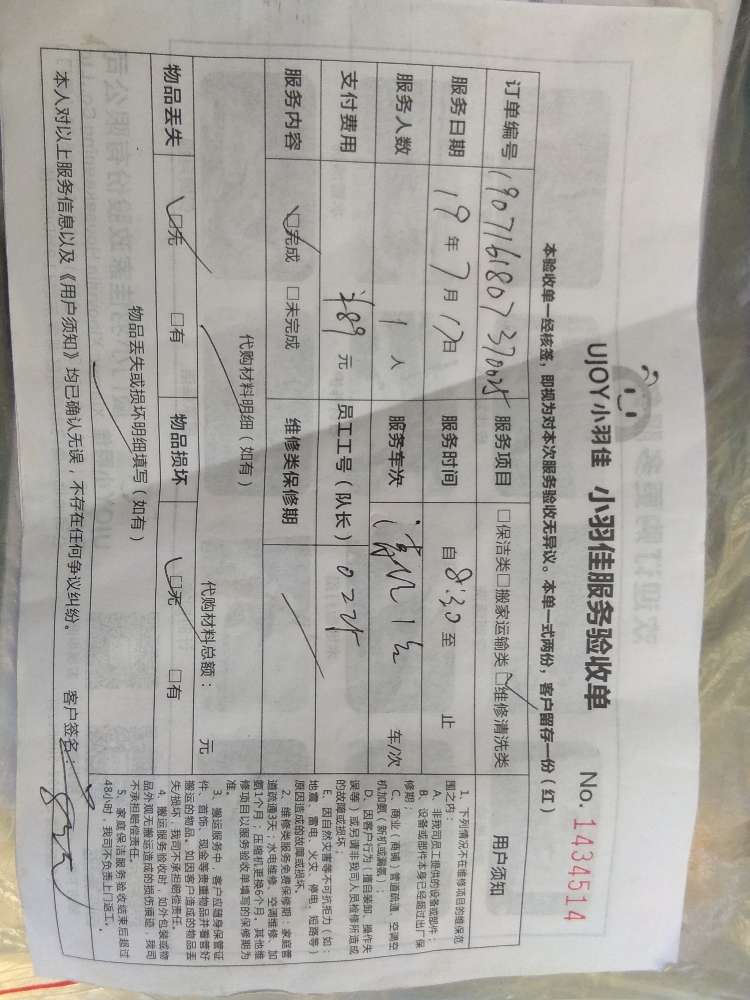 UJOY小羽佳 小羽佳服务验收单 No. 1434514
本验收单一经核签，即视为对本次服务验收无异议。本单一式两份，客户留存一份（红）
订单编号 190716180737002 服务项目 □保洁类□搬家运输类□维修清洗类
服务日期 19年7月17日 服务时间 自8:30至 止
服务人数 1人 服务车次 车/次
支付费用 ¥89元 员工工号（队长） 022
服务内容 □完成 □未完成 维修类保修期
代购材料明细（如有）
代购材料总额： 元
物品丢失 □无 □有 物品损坏 □无 □有
物品丢失或损坏明细填写（如有）
本人对以上服务信息以及《用户须知》均已确认无误，不存在任何争议纠纷。 客户签名：
用户须知
1、下列情况不在维修项目的维保范
围之内：
A、非我司员工提供的设备或部件；
B、设备或部件本身已经超过出厂保
修期；
C、商业（商铺）管道疏通、空调空
机加氨（新机或漏氨）；
D、因客户行为（擅自装卸、操作失
误等）或另请非我司人员检修所造成
的故障或损坏；
E、因自然灾害等不可抗拒力（如：
地震、雷电、火灾、停电、短路等）
原因造成的故障或损坏。
2、维修类服务免费保修期：家庭管
道疏通3天；水电维修、空调维修、加
氨1个月；压缩机更换6个月，其他维
修项目以服务验收单填写的保修期为
准。
3、搬运服务中，客户应随身保管证
件、首饰、现金等贵重物品并看管好
搬运的物品。如因客户造成的物品丢
失/损坏，我司不承担赔偿责任。
4、搬运服务验收时，如外包装或物
品外观无搬运造成的损伤痕迹，我司
不承担赔偿责任。
5、家庭保洁服务验收结束后超过
48小时，我司不负责上门返工。